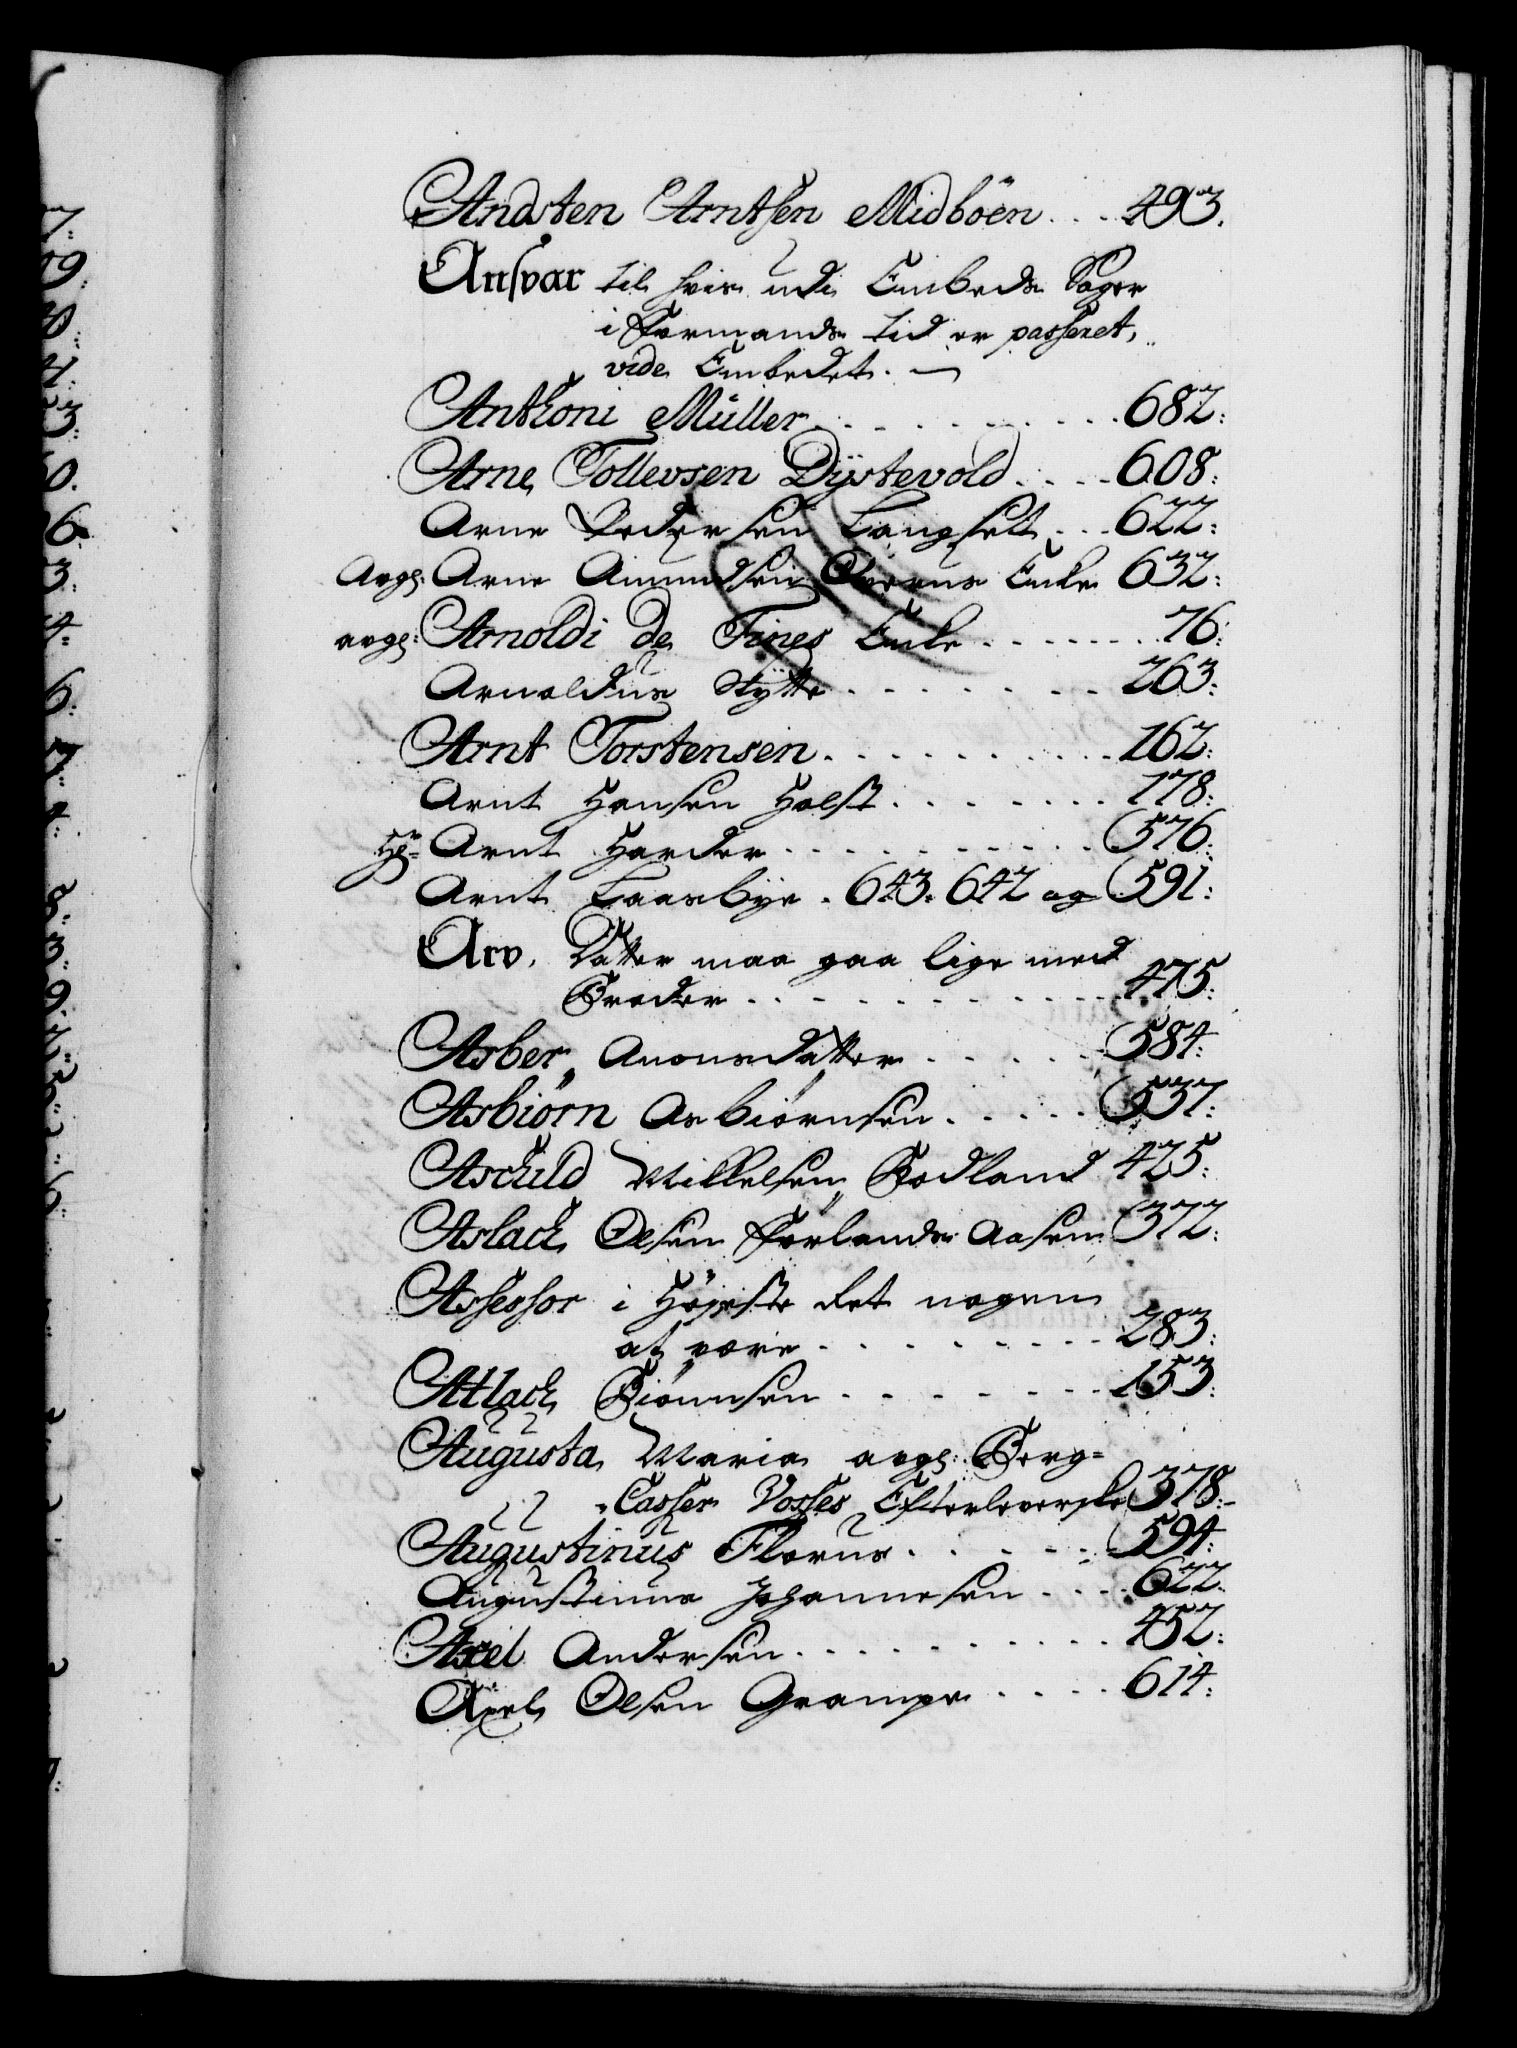 Andsten Arntsen Midböen . . . 493.
Ansvar til hvis udi Embeds Sager
i Formands tid er passeret,
vide Embedet. —
Anthoni Müller . . . . . . . . . . 682:
Arne Tollevsen Dÿstevold . . . . 608:
Arne Pedersen Langset . . . 622:
Avgl: Arne Amundsen Qverns Enke 632:
avgl: Arnoldi de Fines Enke . . . . . . . 76:
Arnoldus Nÿtte . . . . . . . . 263:
Arnt Torstensen . . . . . . . . . . 162:
Arnt Hansen Holst . . . . . . . . 178:
Hr= Arnt Harder . . . . . . . . . . . 576:
Arnt Laasbÿe . 643. 642 og 591:
Arv, Datter maa gaa lige med
Broder . . . . . . . . . . . . . 475:
Asber Anonsdatter . . . . . . 584:
Asbiörn Asbiörnsen . . . . . 537:
Aschild Mikkelsen Rodland 425:
Aslach Olsen Förlands Aasen 372:
Assessor i Höyeste Ret nogen
at være . . . . . . . . . 283:
Atlach Biörnsen . . . . . . . . 153:
Augusta Maria avgl: Berg=
Casser Vosses Efterleverske 378:
Augustinus Florus . . . . . . 594:
Augustinus Johannesen . . . . 622.
Axel Andersen . . . . . . . . . . . 452:
Axel Olsen Grampe . . . . . 614: